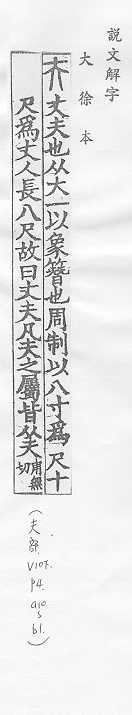 説文解字
大徐本
夫 丈夫也从大一以象簪也周制以八寸爲尺十
尺爲丈人長八尺故曰丈夫凡夫之屬皆从夫甫無切
(夫部.
V107.
P4.
a10.
s
b1.)